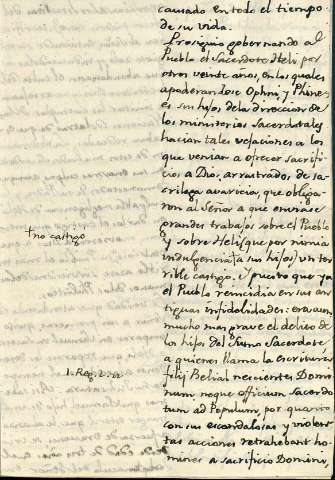 causado en todo el tiempo
de su vida.
Prosiguio gobernando al
Pueblo el Sacerdote Heli por
otros veinte años, en los quales
apoderandose Ophni, y Phine-
es sus hijos de la direccion de
los ministerios Sacerdotales
hacian tales vejaciones a los
que venian a ofrecer sacrifi-
cios a Dios, arrastrados de sa-
crilega avaricia, que obliga-
ron al Señor a que enviase
grandes trabajos sobre el Pueblo
†no castigó
y sobre Heli (que por nimia
indulgencia † a sus hijos) un ter-
rible castigo. Y puesto que ya
el Pueblo reincidia en sus an-
tiguas infidelidades: era aun
mucho mas grave el delito de
los hijos del Sumo Sacerdote
a quienes llama la Escritura
1. Reg. 2. 12
filij Belial nescientes Domi-
num, neque officium Sacerdo-
tum ad Populum, por quanto
con sus escandalosas y violen-
tas acciones retrahebant ho-
mines a sacrificio Domini,